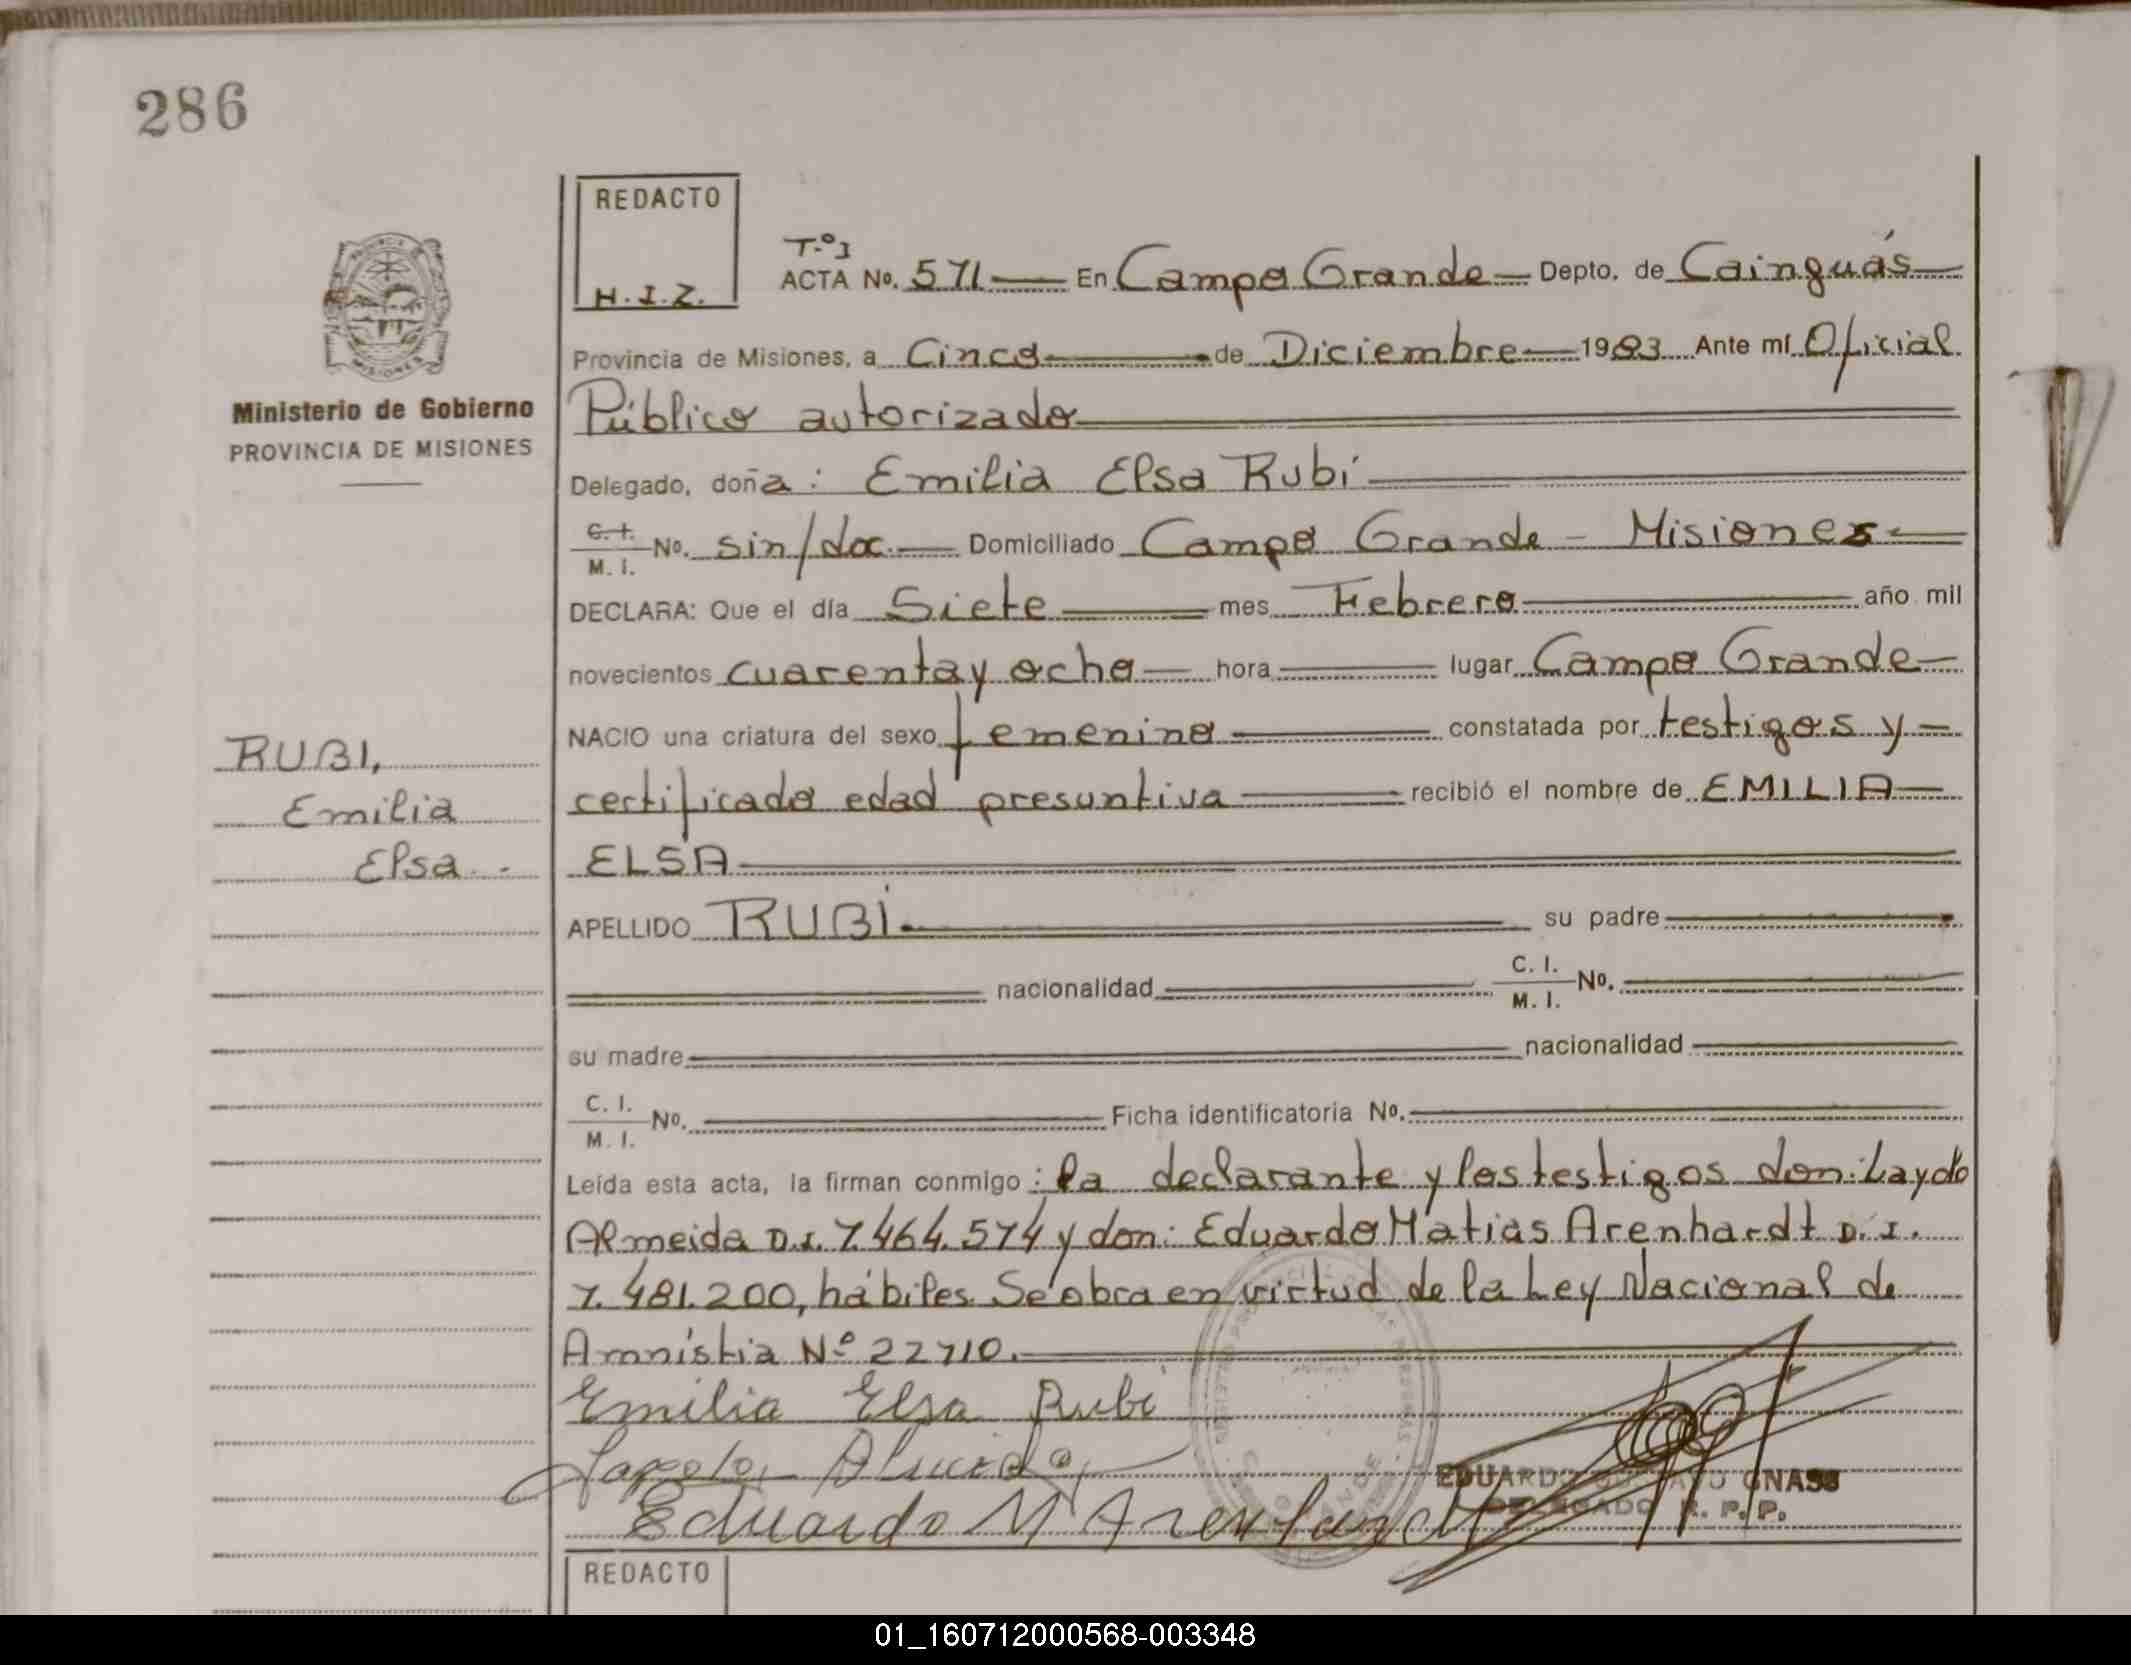 286
REDACTO
H.I.Z.
T.º1
ACTA No. 571 En Campo Grande Depto. de Cainguás
Provincia de Misiones, a Cinco de Diciembre 1983 Ante mí Oficial
Público autorizado
Ministerio de Gobierno
PROVINCIA DE MISIONES
Delegado, doña: Emilia Elsa Rubí
C. I.
M. I. No. sin/doc. Domiciliado Campo Grande - Misiones
DECLARA: Que el día Siete mes Febrero año mil
novecientos cuarenta y ocho hora lugar Campo Grande
NACIO una criatura del sexo femenino constatada por testigos y
certificado edad presuntiva recibió el nombre de EMILIA
ELSA
RUBI,
Emilia
Elsa.-
APELLIDO RUBÍ su padre
nacionalidad C. I.
M. I. No.
su madre nacionalidad
C. I.
M. I. No. Ficha identificatoria No.
Leída esta acta, la firman conmigo: la declarante y los testigos don: Laydo
Almeida D.I. 7.464.574 y don: Eduardo Matias Arenhardt D.I.
7.481.200, hábiles. Se obra en virtud de la Ley Nacional de
Amnistia Nº 22710.
Emilia Elsa Rubi
Almeida
Eduardo M Arenhardt
EDUARDO GUSTAVO GNASS
DELEGADO R. P. P.
REDACTO
01_160712000568-003348